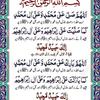 بِسْمِ اللهِ الرَّحْمٰنِ الرَّحِيْمِ
اَللّٰهُمَّ صَلِّ عَلٰى مُحَمَّدٍ وَّعَلٰى اٰلِ مُحَمَّدٍ
كَمَا صَلَّيْتَ عَلٰى اِبْرَاهِيْمَ وَعَلٰى اٰلِ اِبْرَاهِيْمَ
اِنَّكَ حَمِيْدٌ مَّجِيْدٌ
اَللّٰهُمَّ بَارِكْ عَلٰى مُحَمَّدٍ وَّعَلٰى اٰلِ مُحَمَّدٍ
كَمَا بَارَكْتَ عَلٰى اِبْرَاهِيْمَ وَعَلٰى اٰلِ اِبْرَاهِيْمَ
اِنَّكَ حَمِيْدٌ مَّجِيْدٌ